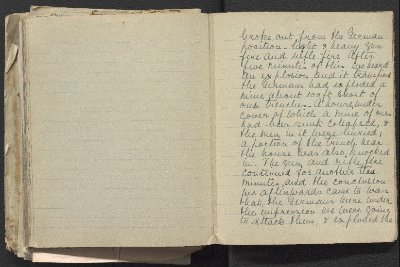 broke out from the German
position - light & heavy gun
fire and rifle fire. After
five minutes of this we heard
an explosion and it transpired
the Germans had exploded a
mine about 100ft short of
our trenches - A house, under
cover of which a mine of ours
had been sunk collapsed, &
the men in it were buried;
a portion of the trench near
the house was also knocked
in. The gun and rifle fire
continued for another
minutes, and the conclusion
we afterwards came to was
that the Germans were under
the impression we were going
to attack them, & exploded the